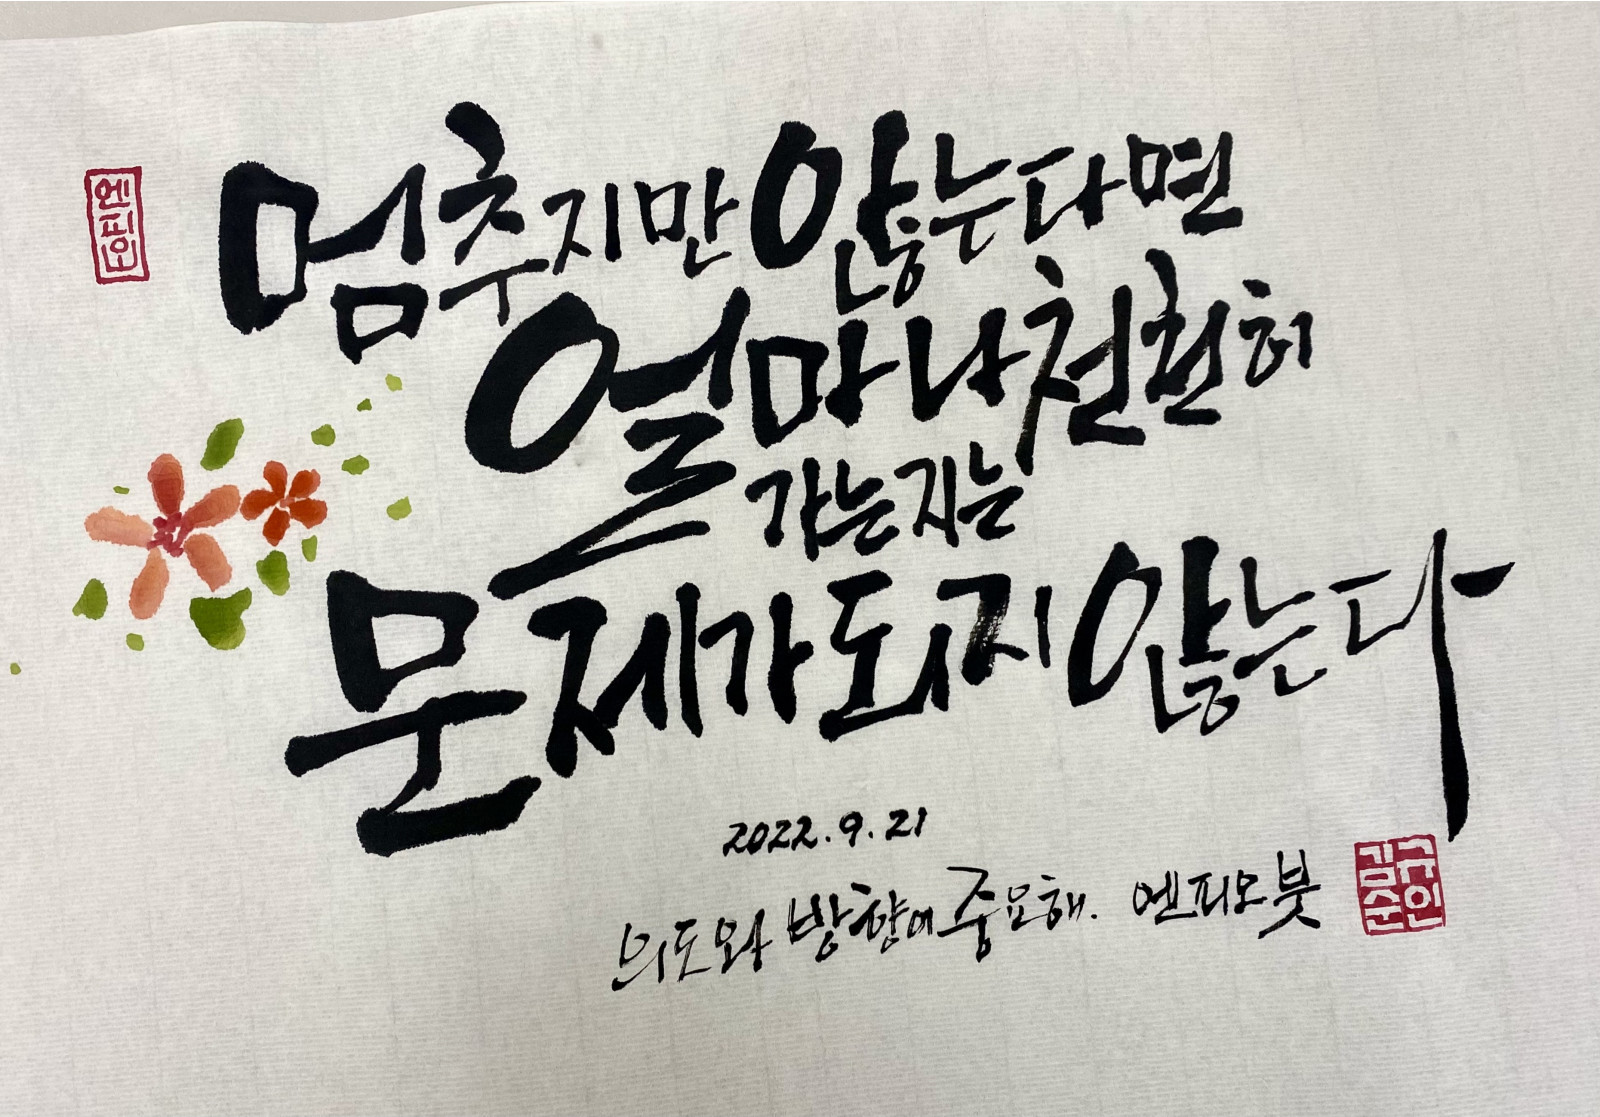 엔피오
멈추지만 않는다면
얼마나 천천히
가는지는
문제가 되지 않는다
2022.9.21
의도와 방향이 중요해. 엔피오 붓